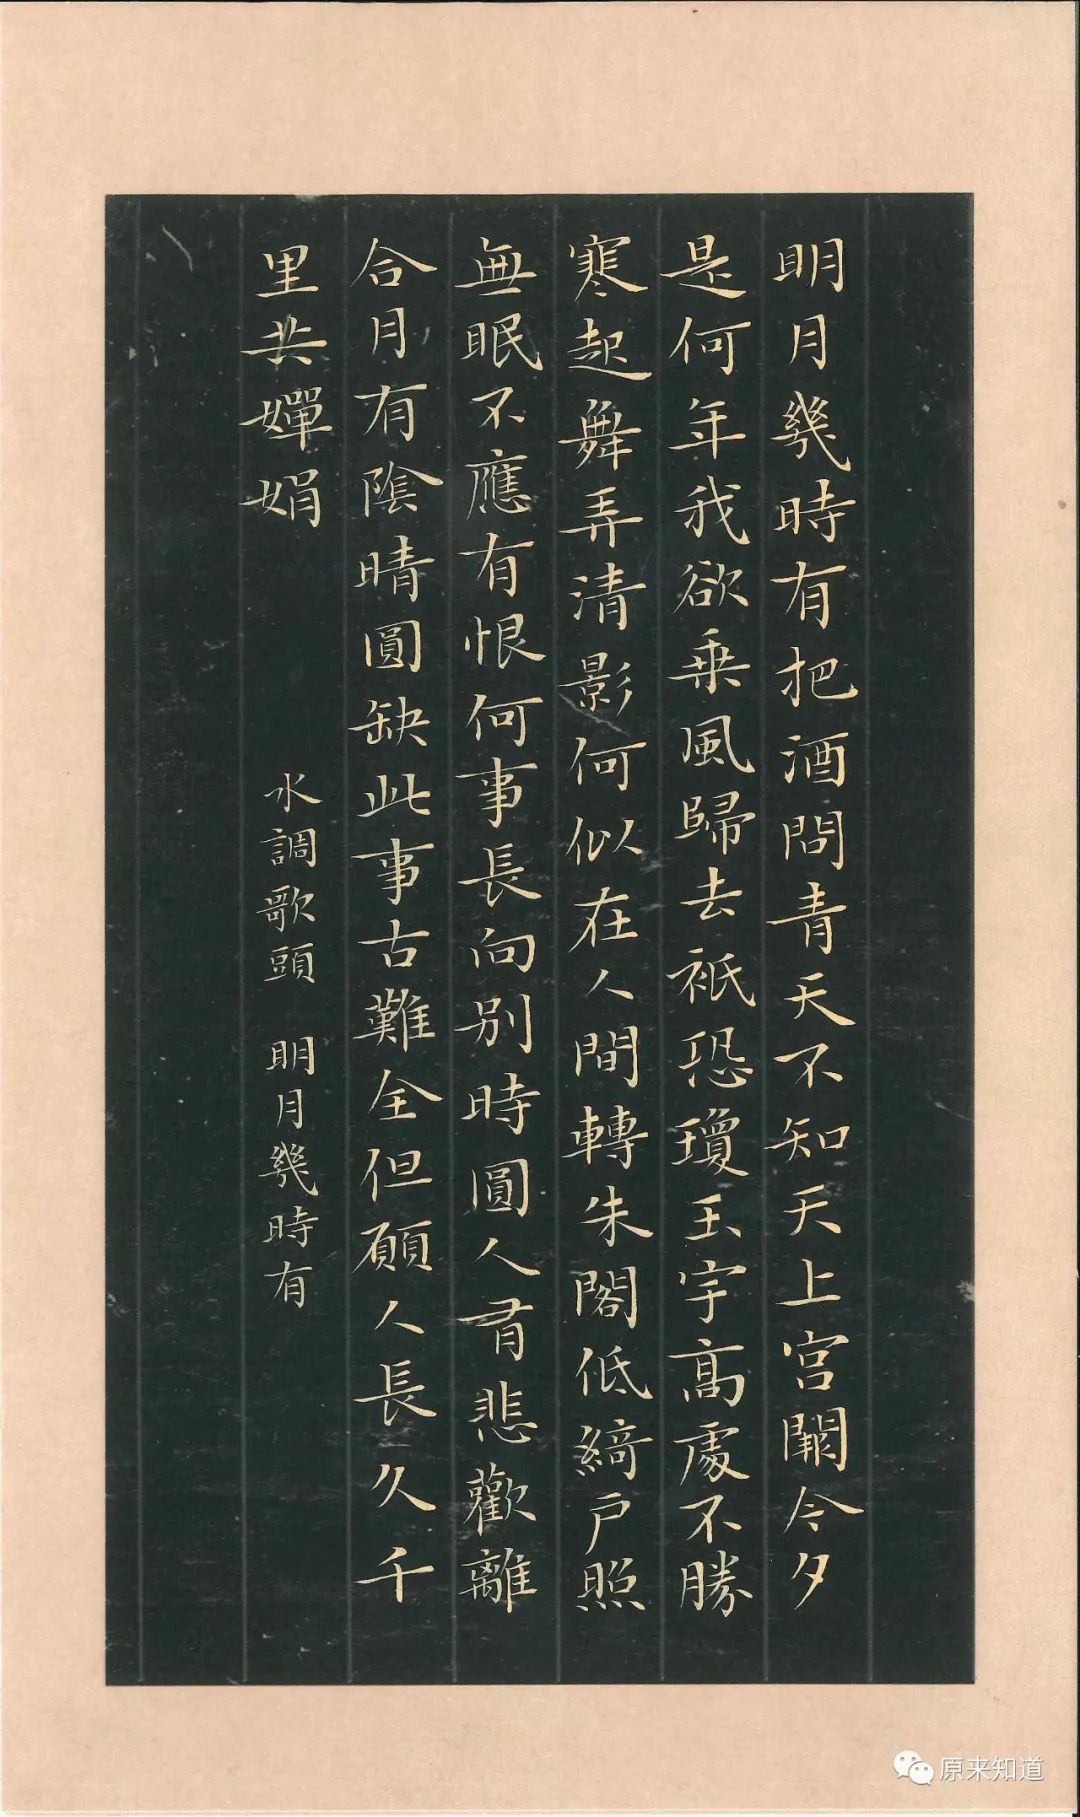 明月幾時有把酒問青天不知天上宮闕今夕
是何年我欲乗風歸去衹恐瓊玉宇高處不勝
寒起舞弄清影何似在人間轉朱閣低綺戶照
無眠不應有恨何事長向別時圓人有悲歡離
合月有陰晴圓缺此事古難全但願人長久千
里共嬋娟
水調歌頭 明月幾時有
原来知道